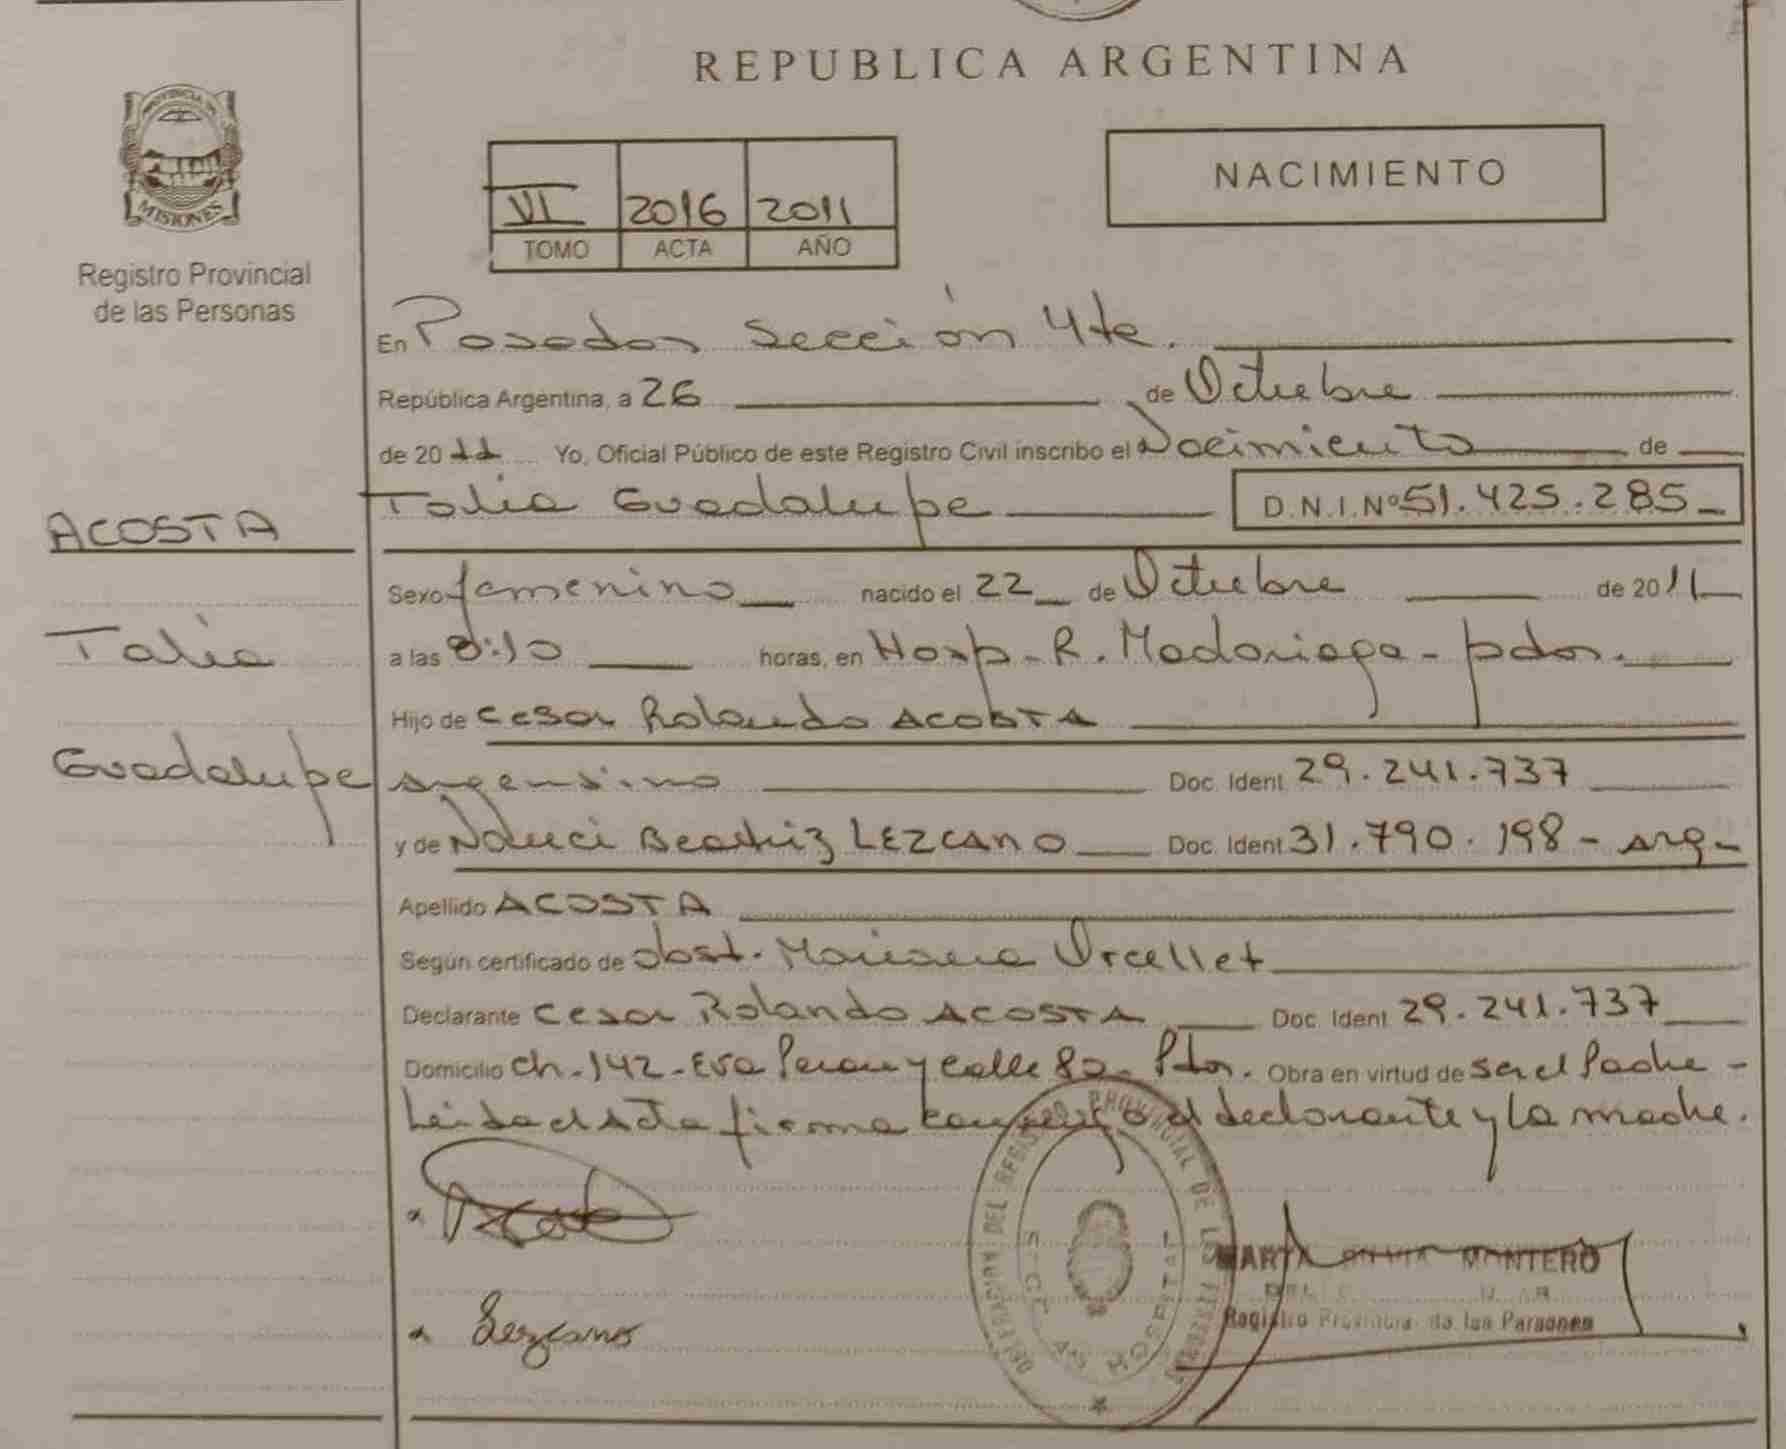 REPUBLICA ARGENTINA
PROVINCIA DE
MISIONES
Registro Provincial
de las Personas
VI 2016 2011
TOMO ACTA AÑO
NACIMIENTO
En Posadas Sección 4ta.
República Argentina, a 26 de Octubre
de 2011 Yo, Oficial Público de este Registro Civil inscribo el Nacimiento de
ACOSTA
Talia Guadalupe D.N.I.Nº 51.425.285
Sexo femenino nacido el 22 de Octubre de 2011
Talia
a las 8:10 horas, en Hosp. R. Madariaga - pdas.
Hijo de Cesar Rolando ACOSTA
Guadalupe
argentino Doc. Ident 29.241.737
y de Beatriz LEZCANO Doc. Ident 31.790.198 - Arg-
Apellido ACOSTA
Según certificado de obst. Mariana Orcellet
Declarante Cesar Rolando ACOSTA Doc. Ident 29.241.737
Domicilio Ch. 142 - Eva Peron y calle 82 - Pdas. Obra en virtud de ser el Padre -
Leida el Acta firma conmigo el declarante y la madre.
Lezcano
MARTA MONTERO
Registro Provincial de las Personas
PROVINCIAL DE LAS PERSONAS
HOSPITAL